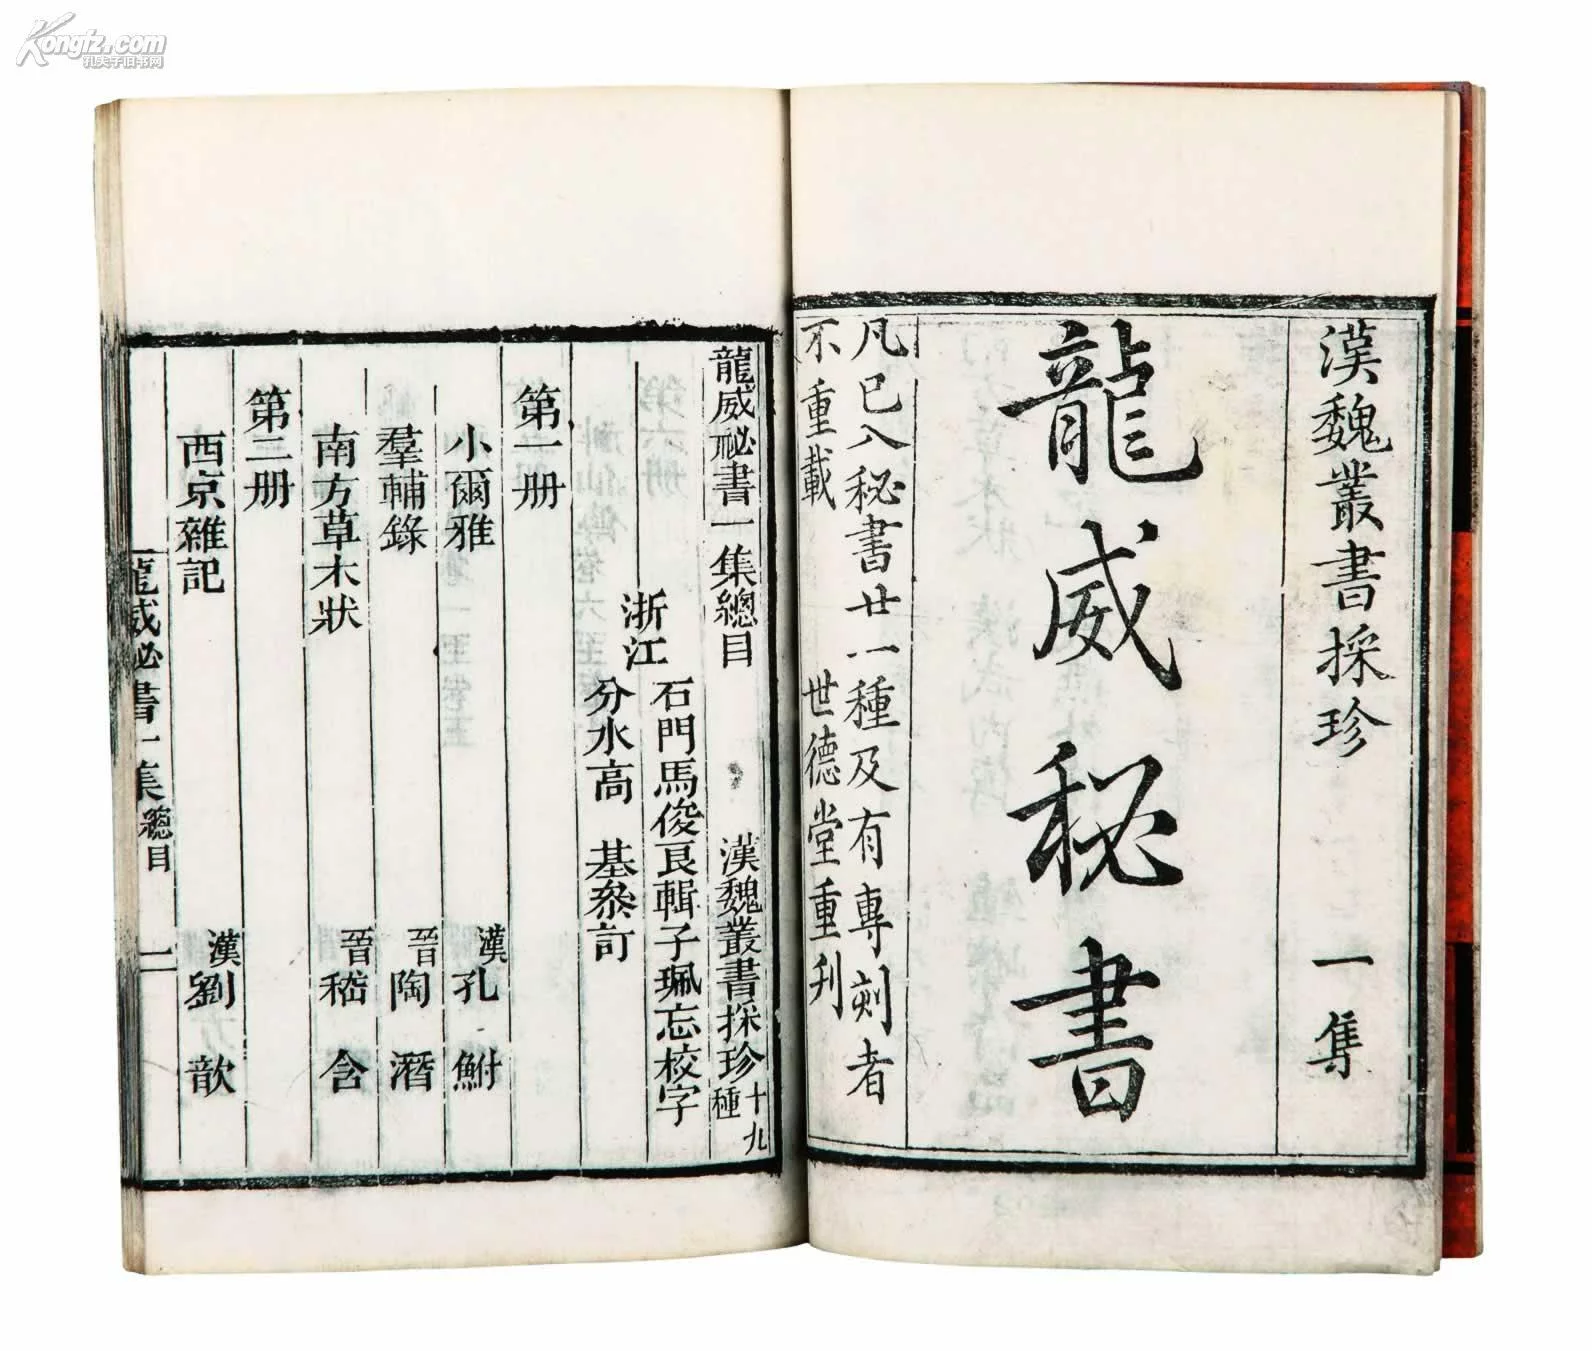 Kongfz.com
孔夫子旧书网
漢魏叢書採珍 一集
龍威秘書
凡已入秘書廿一種及有專刻者
不重載 世德堂重刋
龍威祕書一集總目 漢魏叢書採珍十九種
浙江
石門馬俊良輯子珮忘校字
分水高 基叅訂
第一册
小爾雅 漢孔鮒
羣輔錄 晉陶潛
南方草木狀 晉嵇含
第二册
西京雜記 漢劉歆
龍威祕書一集總目 一